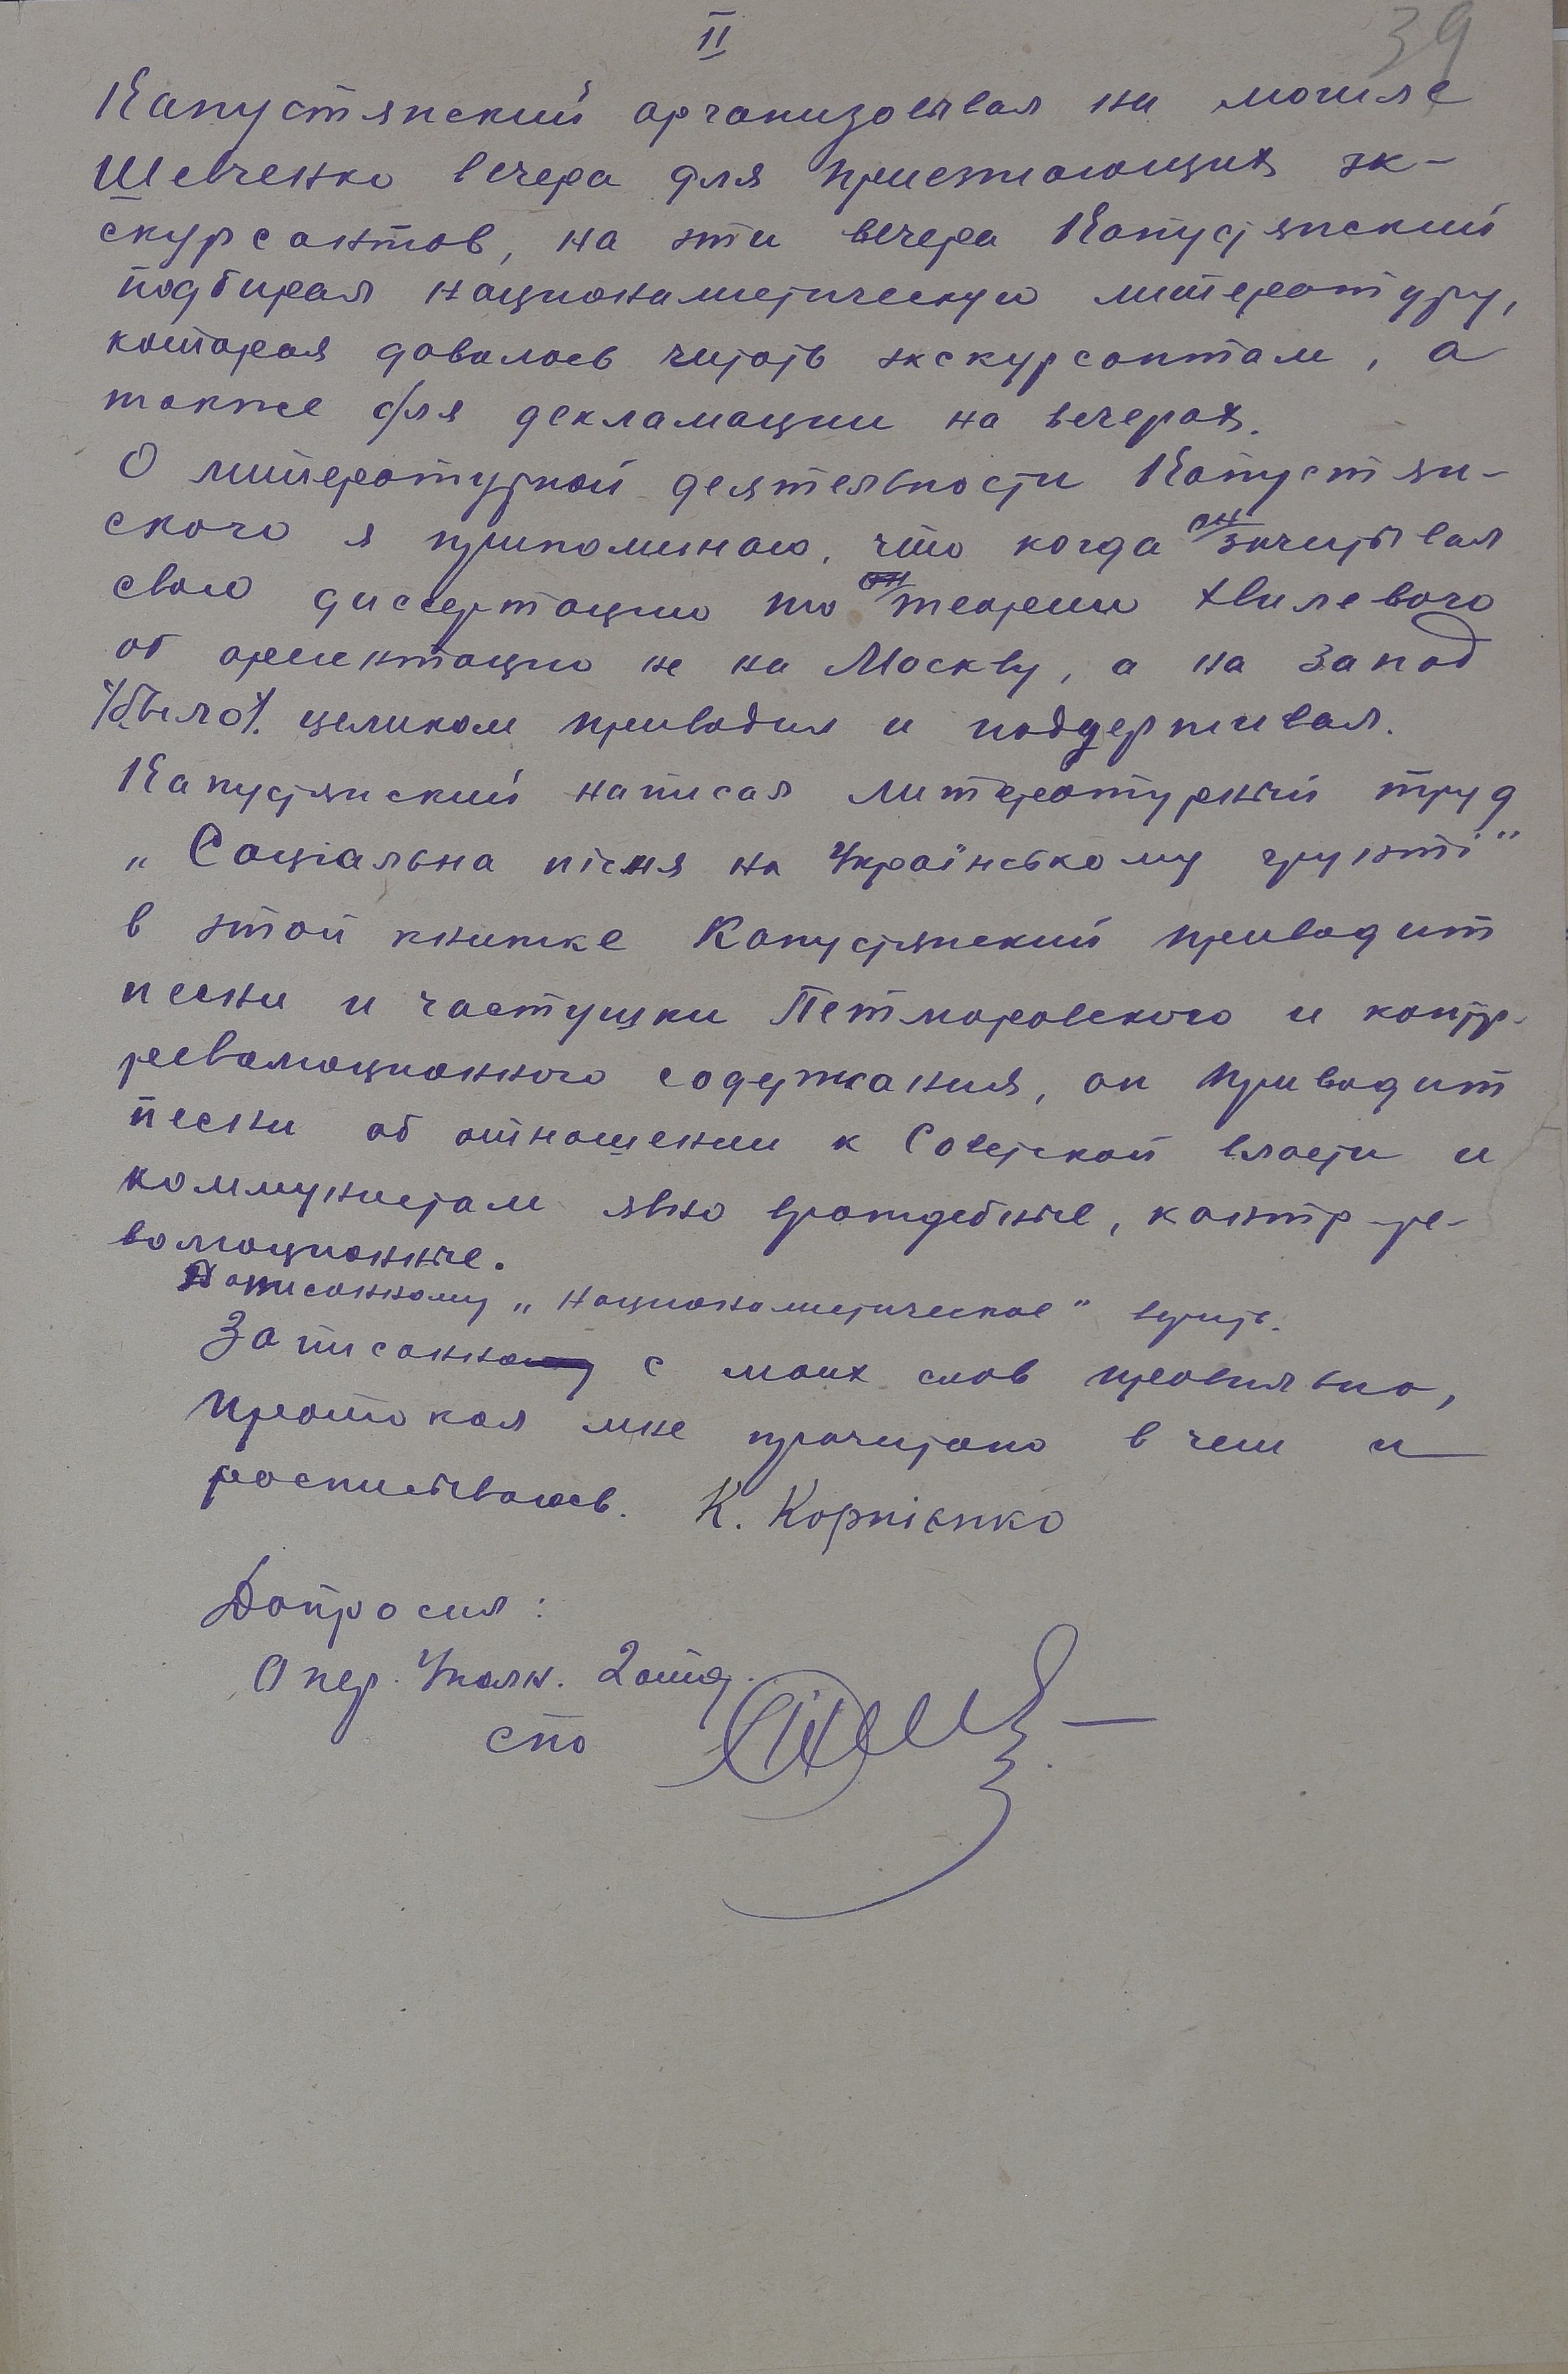 II
39
Капустянский организовывал на могиле
Шевченко вечера для приезжающих эк-
скурсантов, на эти вечера Капустянский
подбирал националистическую литературу,
которая давалось читать экскурсантам, а
также для декламации на вечерах.
О литературной деятельности Капустян-
ского я припоминаю, что когда он зачитывал
свою диссертацию то теорию Хвилевого
об ориентацию не на Москву, а на Запад
/было/. целиком приводил и поддерживал.
Капустянский написал литературный труд
„Соціальна пісня на Українському грунті"
в этой книжке Капустянский приводит
песни и частушки Петлюровского и контр-
революционного содержания, он приводит
песни об отношении к Советской власти и
коммунистам явно враждебные, контр-ре-
волюционные.
Написанному „националистическое" верить.
Записанно с моих слов правильно,
протокол мне прочитано в чем и
росписываюсь. К. Корнієнко
Допросил:
Опер. Уполн. 2 отд.
СПО